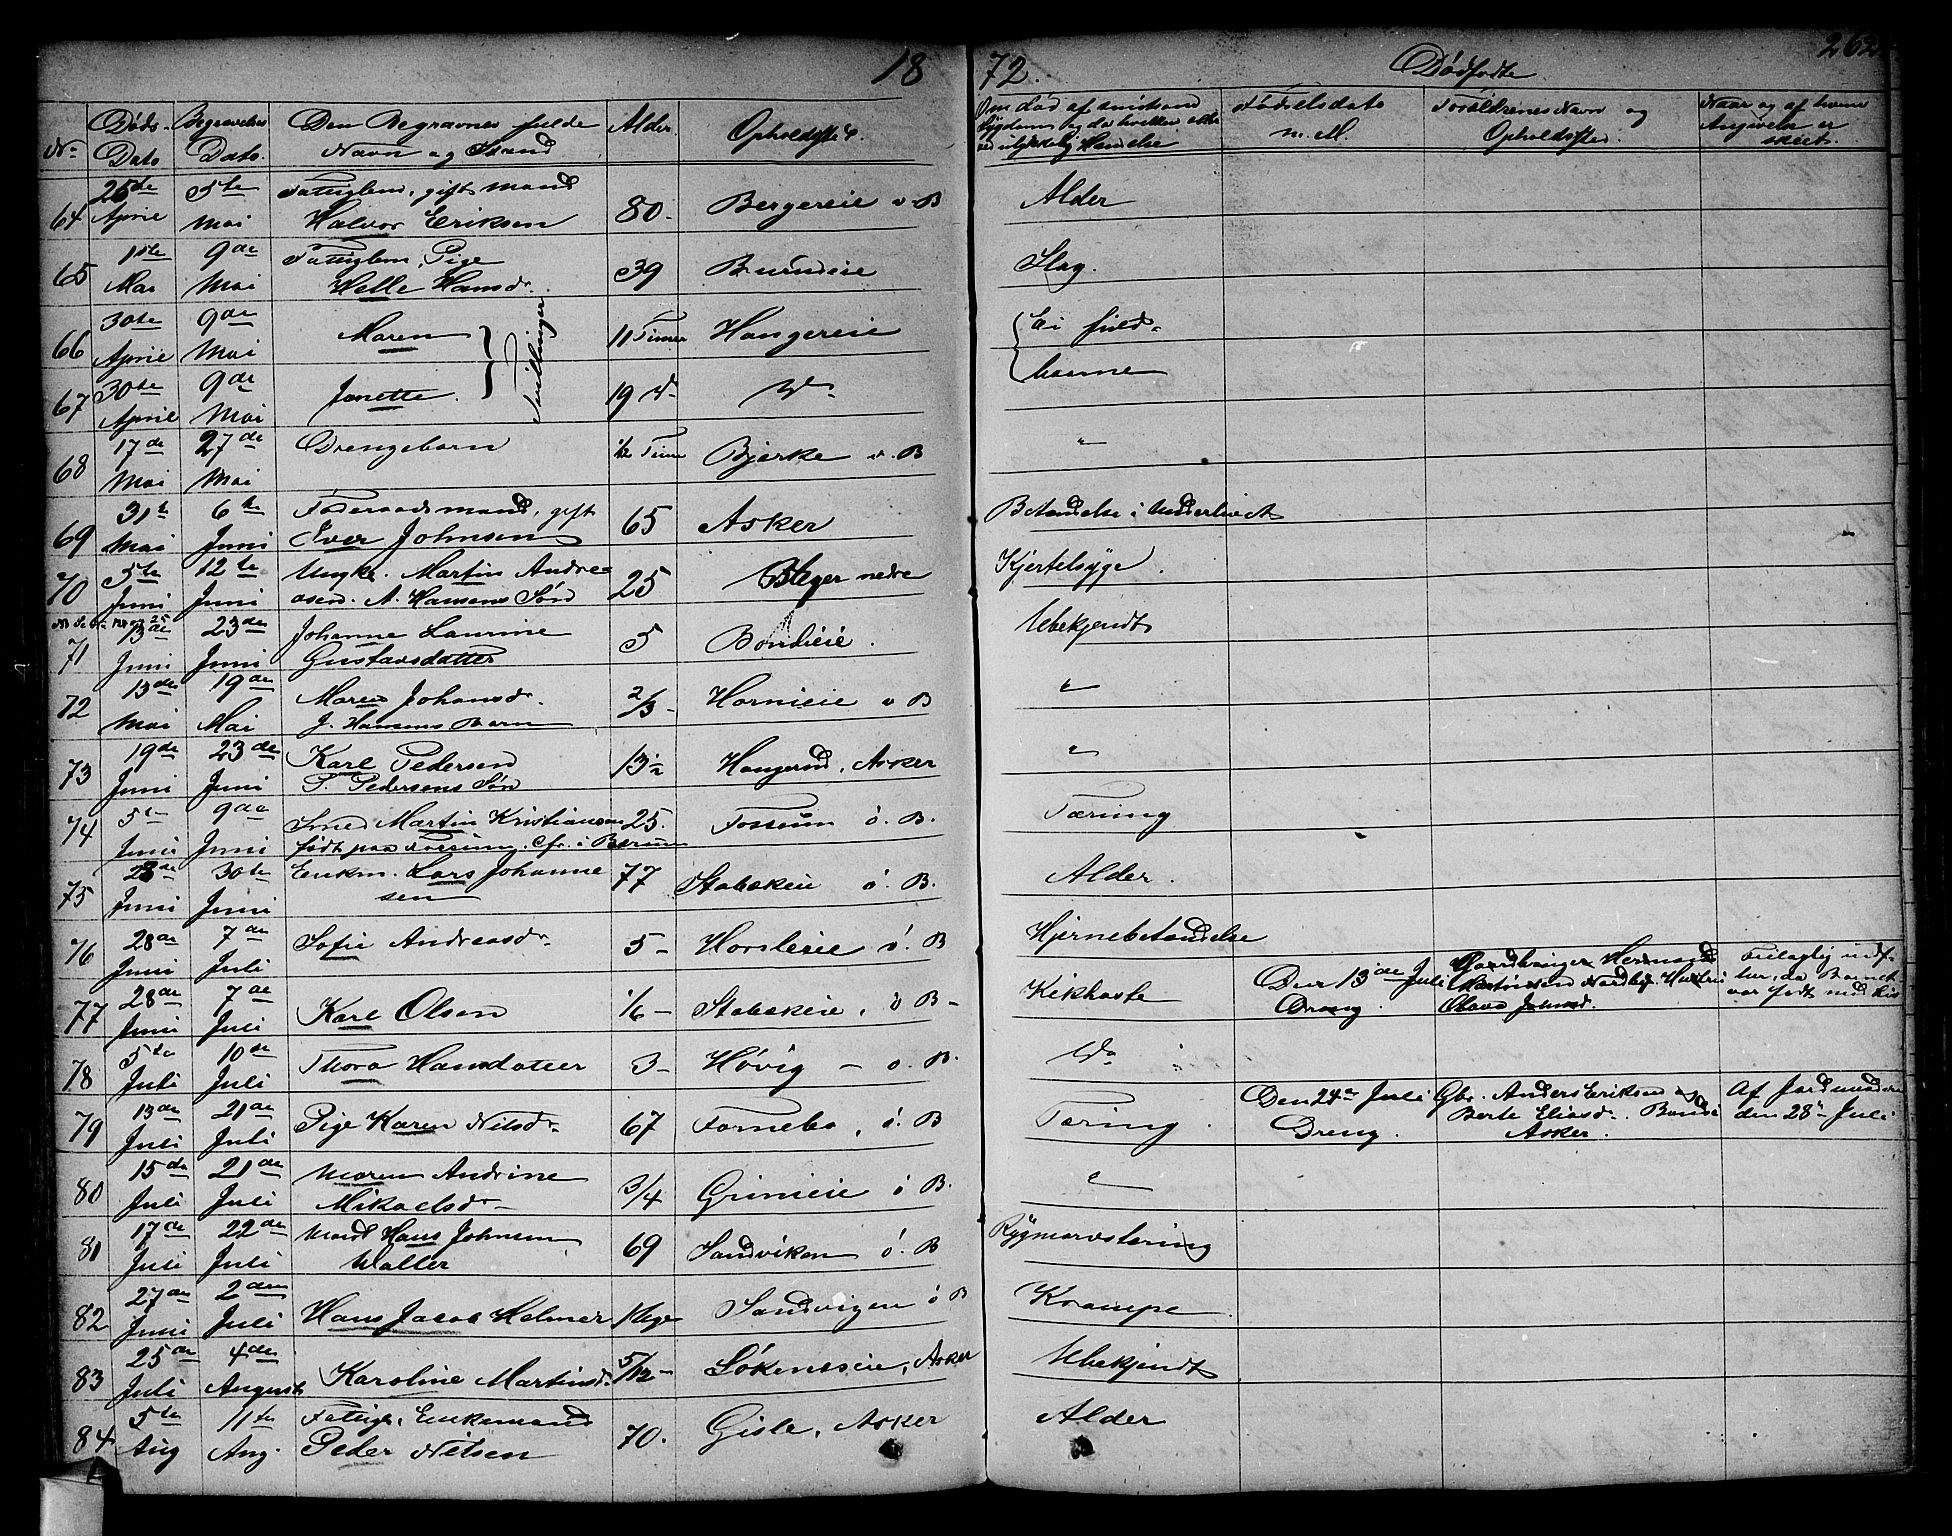 18 72. Dødfødte 262
No Døds- Dato Begravelses Dato. Den Begravnes fulde Navn og Stand Alder. Opholdssted. Om død af smitsom Sygdom og da hvilken eller ved ulykkelig Hændelse Fødselsdato m. M. Forældrenes Navn og Opholdssted. Naar og af hvem Angivelse er skeet.
64 25de April 5te Mai Fattiglem, gift Mand Halvor Eriksen 80- Bergereie v B Alder
65 1ste Mai 9de Mai Fattiglem, Pige Helle Hansdr. 39 Burudeie Slag.
66 30te April 9de Mai Maren } Tvillinger 11 Timer Haugereie { Ei fuld-
67 30te April 9de Mai Janette. 19 do do { baarne
68 17de Mai 27de Mai Drengebarn 1/2 Time Bjerke v. B "
69 31te Mai 6te Juni Føderaadsmand, gift Iver Johnsen 65 Asker Betændelse i Underlivet
70 5te Juni 12te Juni Ungk. Martin Andreasen. A. Hansens Søn 25 Bleger nedre Kjertelsyge.
71 13de Juni 23de Juni Johanne Laurine Gustavsdatter 5 Bondieie. Ubekjendt
72 13de Mai 19de Mai Maren Johansdr. J. Hansens Barn 2/3- Hornieie v B "
73 19de Juni 23de Juni Karl Pedersen P. Pedersens Søn 13- Haugerud, Asker "
74 5te Juni 9de Juni Smed Martin Kristiansen født paa Fossum. Cfr. i Bærum 25. Fossum ö. B. Tæring
75 28de Juni 30te Juni Enkm. Lars Johannesen 77 Stabækeie ö. B. Alder.
76 28de Juni 7de Juli Sofie Andreasdr. 5- Horsleeie v. B Hjernebetændelse
77 28de Juni 7de Juli Karl Olsen 1/6- Stabækeie, ö B- Kikhoste Den 13de Juli Dreng. Gaardbruger Herman Martinsen Nordby. Hustru Olava Johnsd.
78 5te Juli 10de Juli Thora Hansdatter 3- Høvig - ö. B. do
79 13de Juli 21de Juli Pige Karen Nilsdr. 67 Fornebo, ö. B Tæring. Den 24de Juli Dreng. Gbr. Anders Eriksen og Berte Eliasdr. Bondi Asker. Af Jordmoderen den 28de Juli
80 15de Juli 21de Juli Maren Andrine Mikaelsdr- 3/4 Grinieie ö B. "
81 17de Juli 22de Juli Mand Hans Johnsen Waller 69 Sandviken ö. B Rygmarvstæring
82 27de Juni 2den Juli Hans Jacob Helmer 1 Uge Sandvigen ö B Krampe
83 25de Juli 4de August Karoline Martinsdr. 5/12- Løkeneseie, Asker Ubekjendt
84 5te Aug 11te Aug. Fattige, Enkemand Peder Nilsen 70. Gisle, Asker Alder